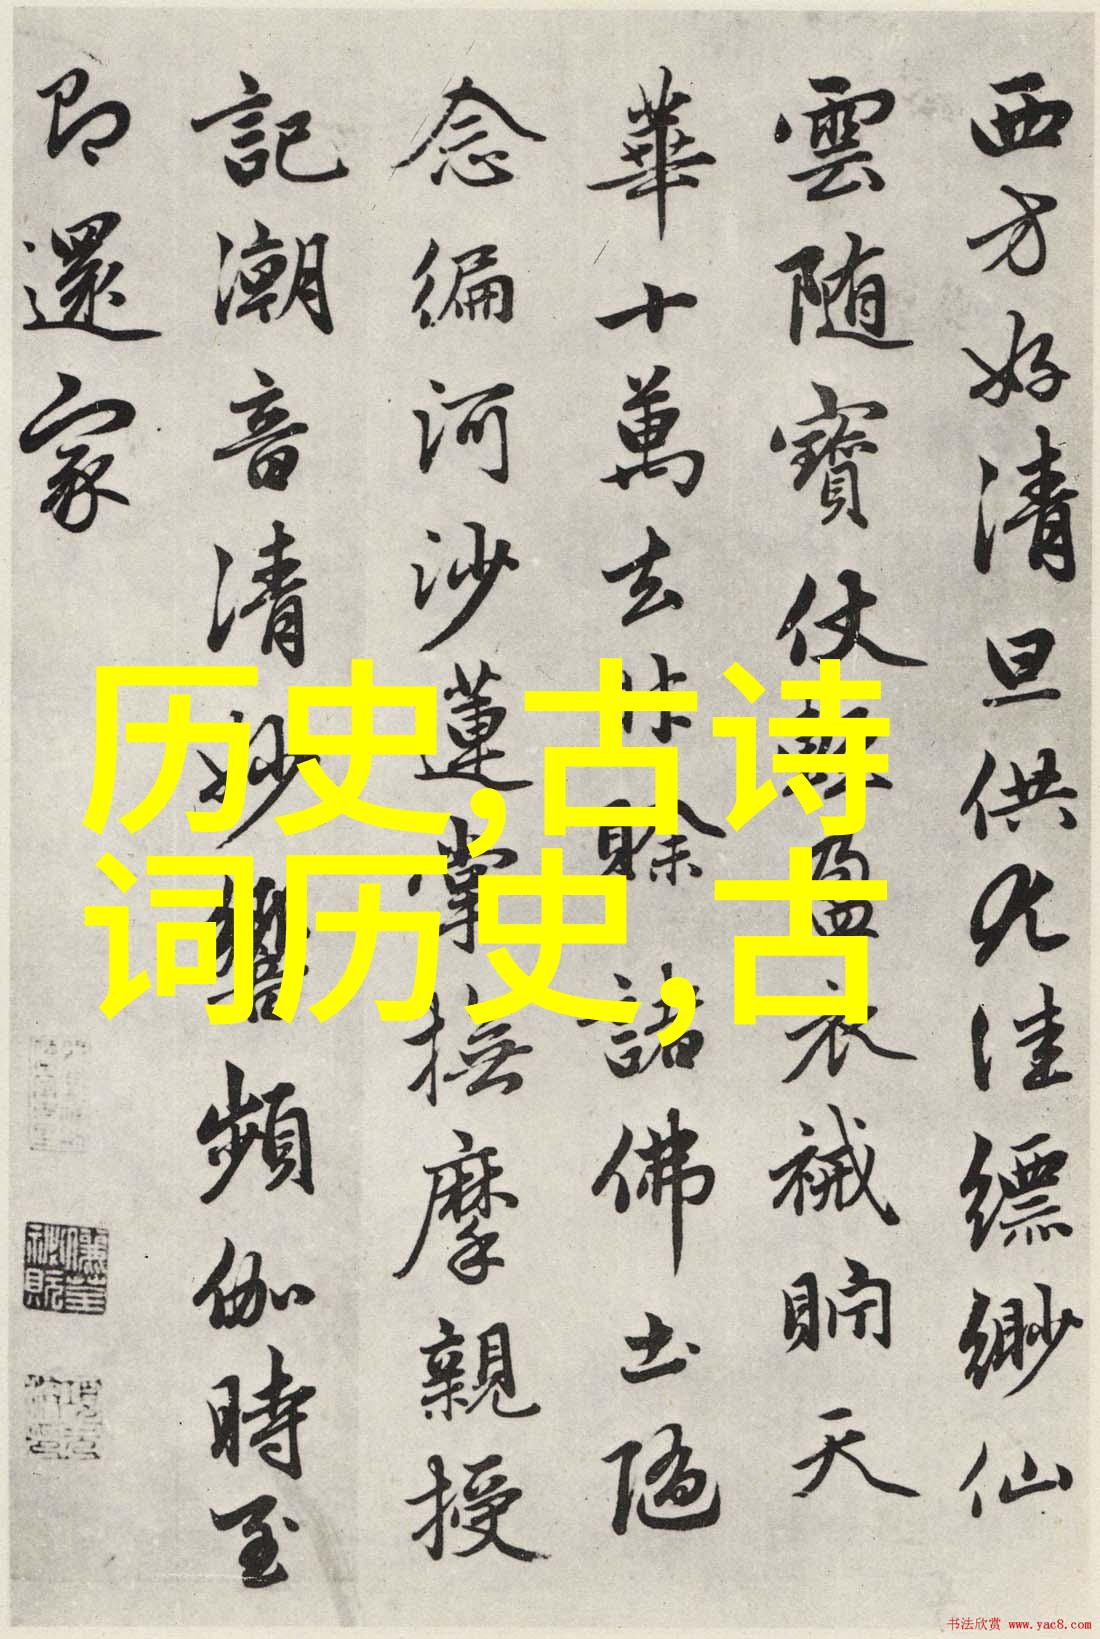 西方好清旦供九洼縹緲仙
雲随寶仗盈衣裓貯天
華十萬去來賒 諸佛土隨
念編河沙蓮掌撫摩親授
記潮音清妙響頻伽時至
即還家
历史,古诗
词历史,古
书法欣赏 www.yac8.com